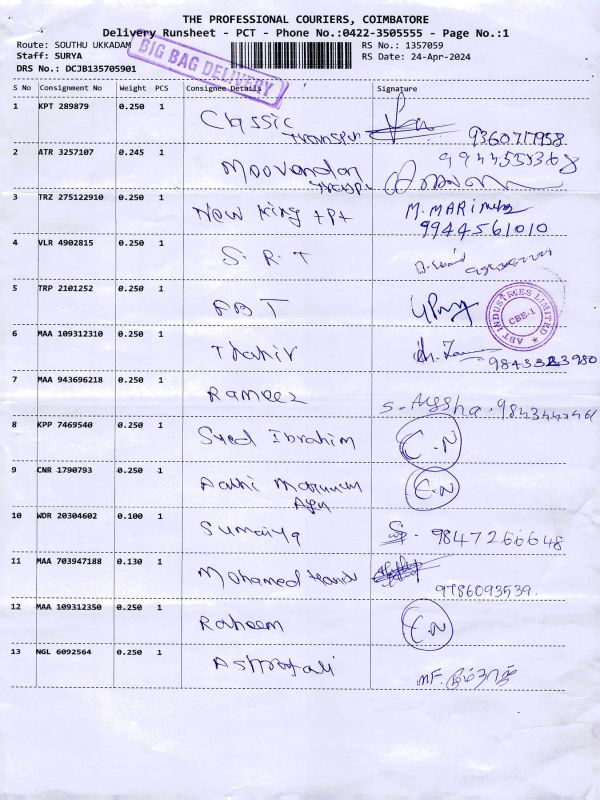 THE PROFESSIONAL COURIERS, COIMBATORE
Delivery Runsheet - PCT - Phone No.:0422-3505555 - Page No.:1
Route: SOUTHU UKKADAM
RS No.: 1357059
Staff: SURYA
RS Date: 24-Apr-2024
DRS No.: DCJB135705901
BIG BAG DELIVERY
S No Consignment No Weight PCS Consignee Details Signature
1 KPT 289879 0.250 1 Classic
9360717958
2 ATR 3257107 0.245 1 Moovendan
3 TRZ 275122910 0.250 1 New King tpt M. MARI
9944561010
4 VLR 4902815 0.250 1 S. R. T
5 TRP 2101252 0.250 1 ABT
ABT INDUSTRIES LIMITED
CBE-1
6 MAA 109312310 0.250 1 Thahir
7 MAA 943696218 0.250 1 Rameez S. Ayysha.
8 KPP 7469540 0.250 1 Syed Ibrahim C.N
9 CNR 1790793 0.250 1 C.N
10 WDR 20304602 0.100 1 Sumaiya 9847266648
11 MAA 703947188 0.130 1 Mohamed
9786093539.
12 MAA 109312350 0.250 1 Raheem C.N
13 NGL 6092564 0.250 1 Ashrafali MF.